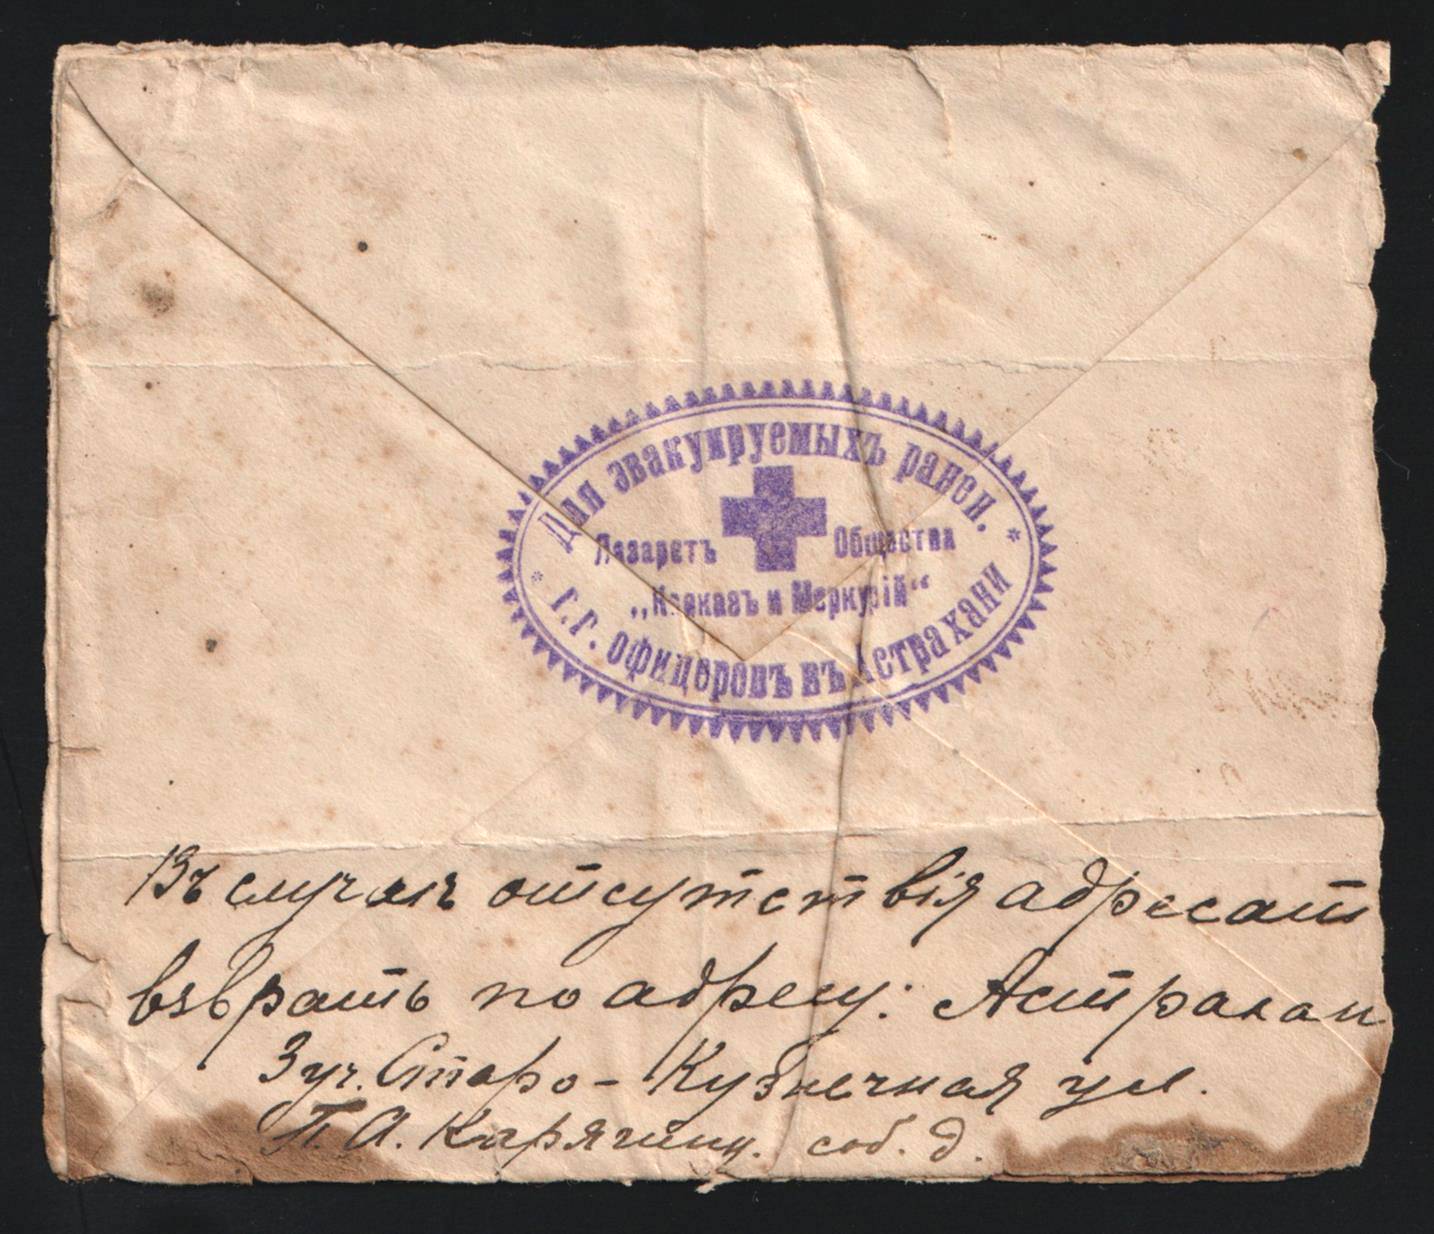 Для эвакуируемыхъ ранен.
Лазаретъ Общества
„Кавказъ и Меркурій“
г.г. офицеровъ въ Астрахани
Въ случаѣ отсутствія адресат
взвратъ по адресу: Астрахан
3 уч. Старо-Кузнечная ул.
П. А. Карягину. соб. д.